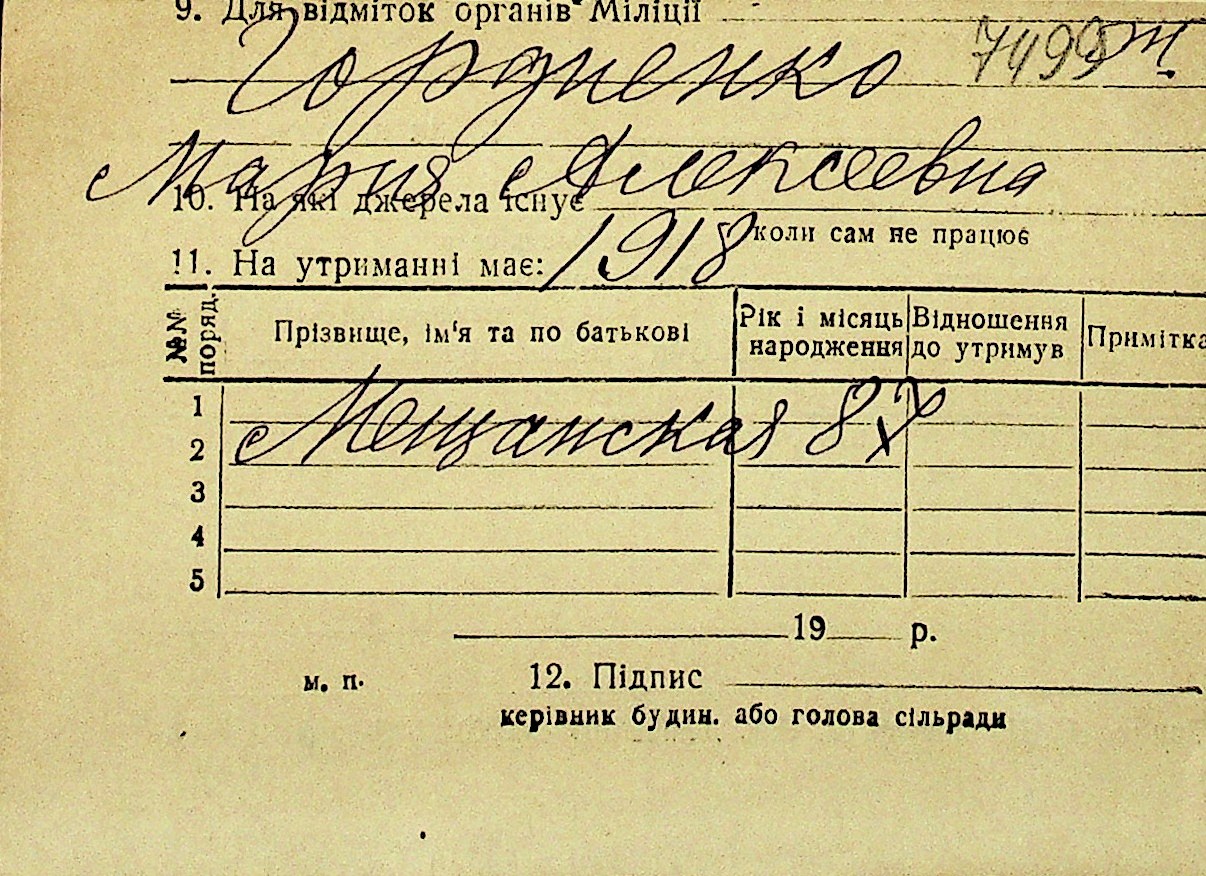 9. Для відміток органів Міліції
Гордиенко 7499
Мария Алексеевна
10. На які джерела існує
коли сам не працює
11. На утриманні має: 1918
№№ поряд. Прізвище, ім'я та по батькові Рік і місяць народження Відношення до утримув Примітка
1
Мещанская 8
2
3
4
5
19 р.
м. п. 12. Підпис
керівник будин. або голова сільради